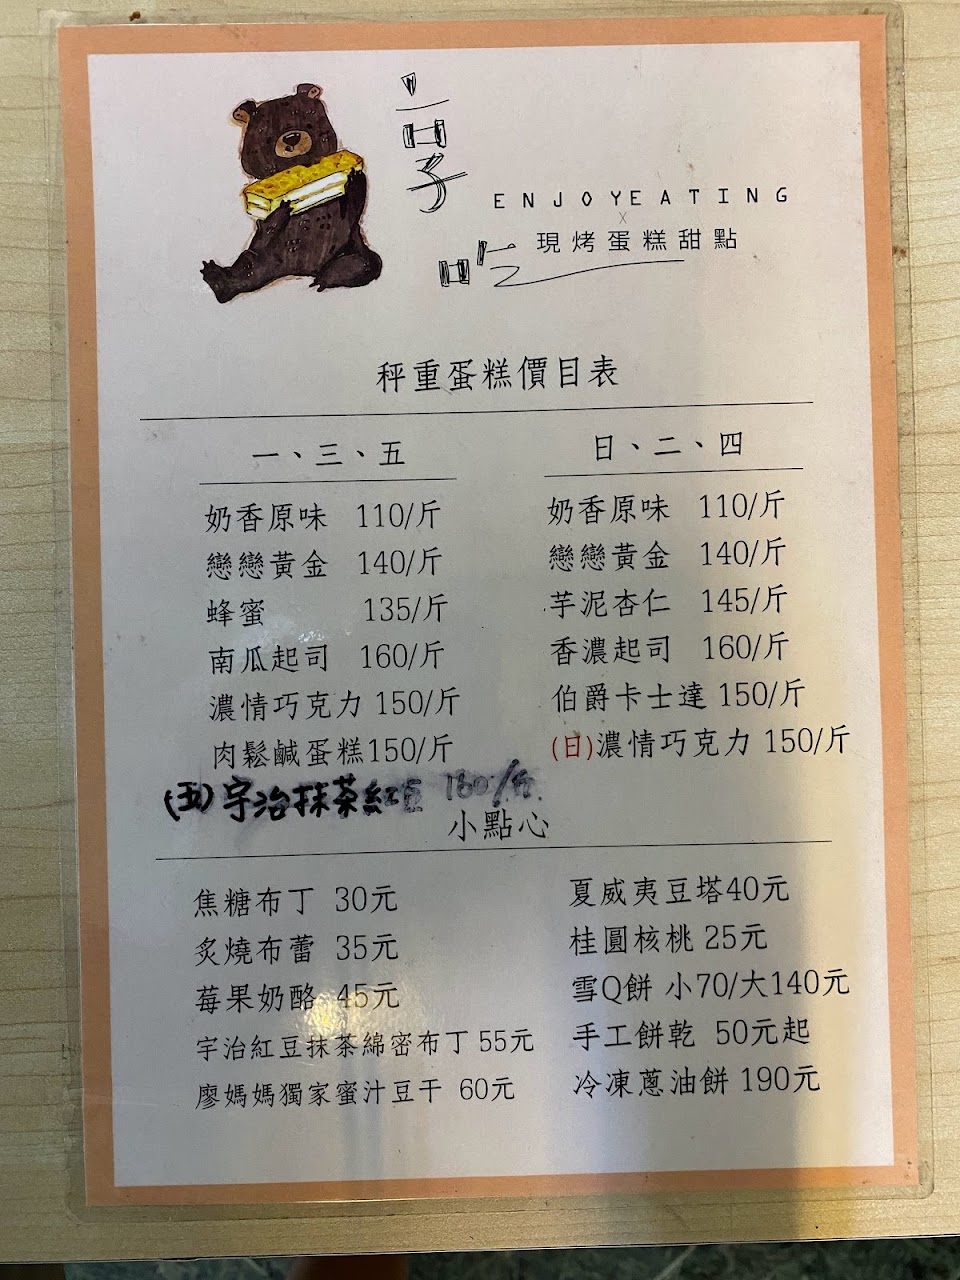 享
ENJOYEATING
X
吃 現烤蛋糕甜點
秤重蛋糕價目表
一、三、五
奶香原味 110/斤
戀戀黃金 140/斤
蜂蜜 135/斤
南瓜起司 160/斤
濃情巧克力 150/斤
肉鬆鹹蛋糕150/斤
(五)宇治抹茶紅豆 160/斤
日、二、四
奶香原味 110/斤
戀戀黃金 140/斤
芋泥杏仁 145/斤
香濃起司 160/斤
伯爵卡士達 150/斤
(日)濃情巧克力 150/斤
小點心
焦糖布丁 30元
炙燒布蕾 35元
莓果奶酪 45元
宇治紅豆抹茶綿密布丁 55元
廖媽媽獨家蜜汁豆干 60元
夏威夷豆塔40元
桂圓核桃 25元
雪Q餅 小70/大140元
手工餅乾 50元起
冷凍蔥油餅 190元